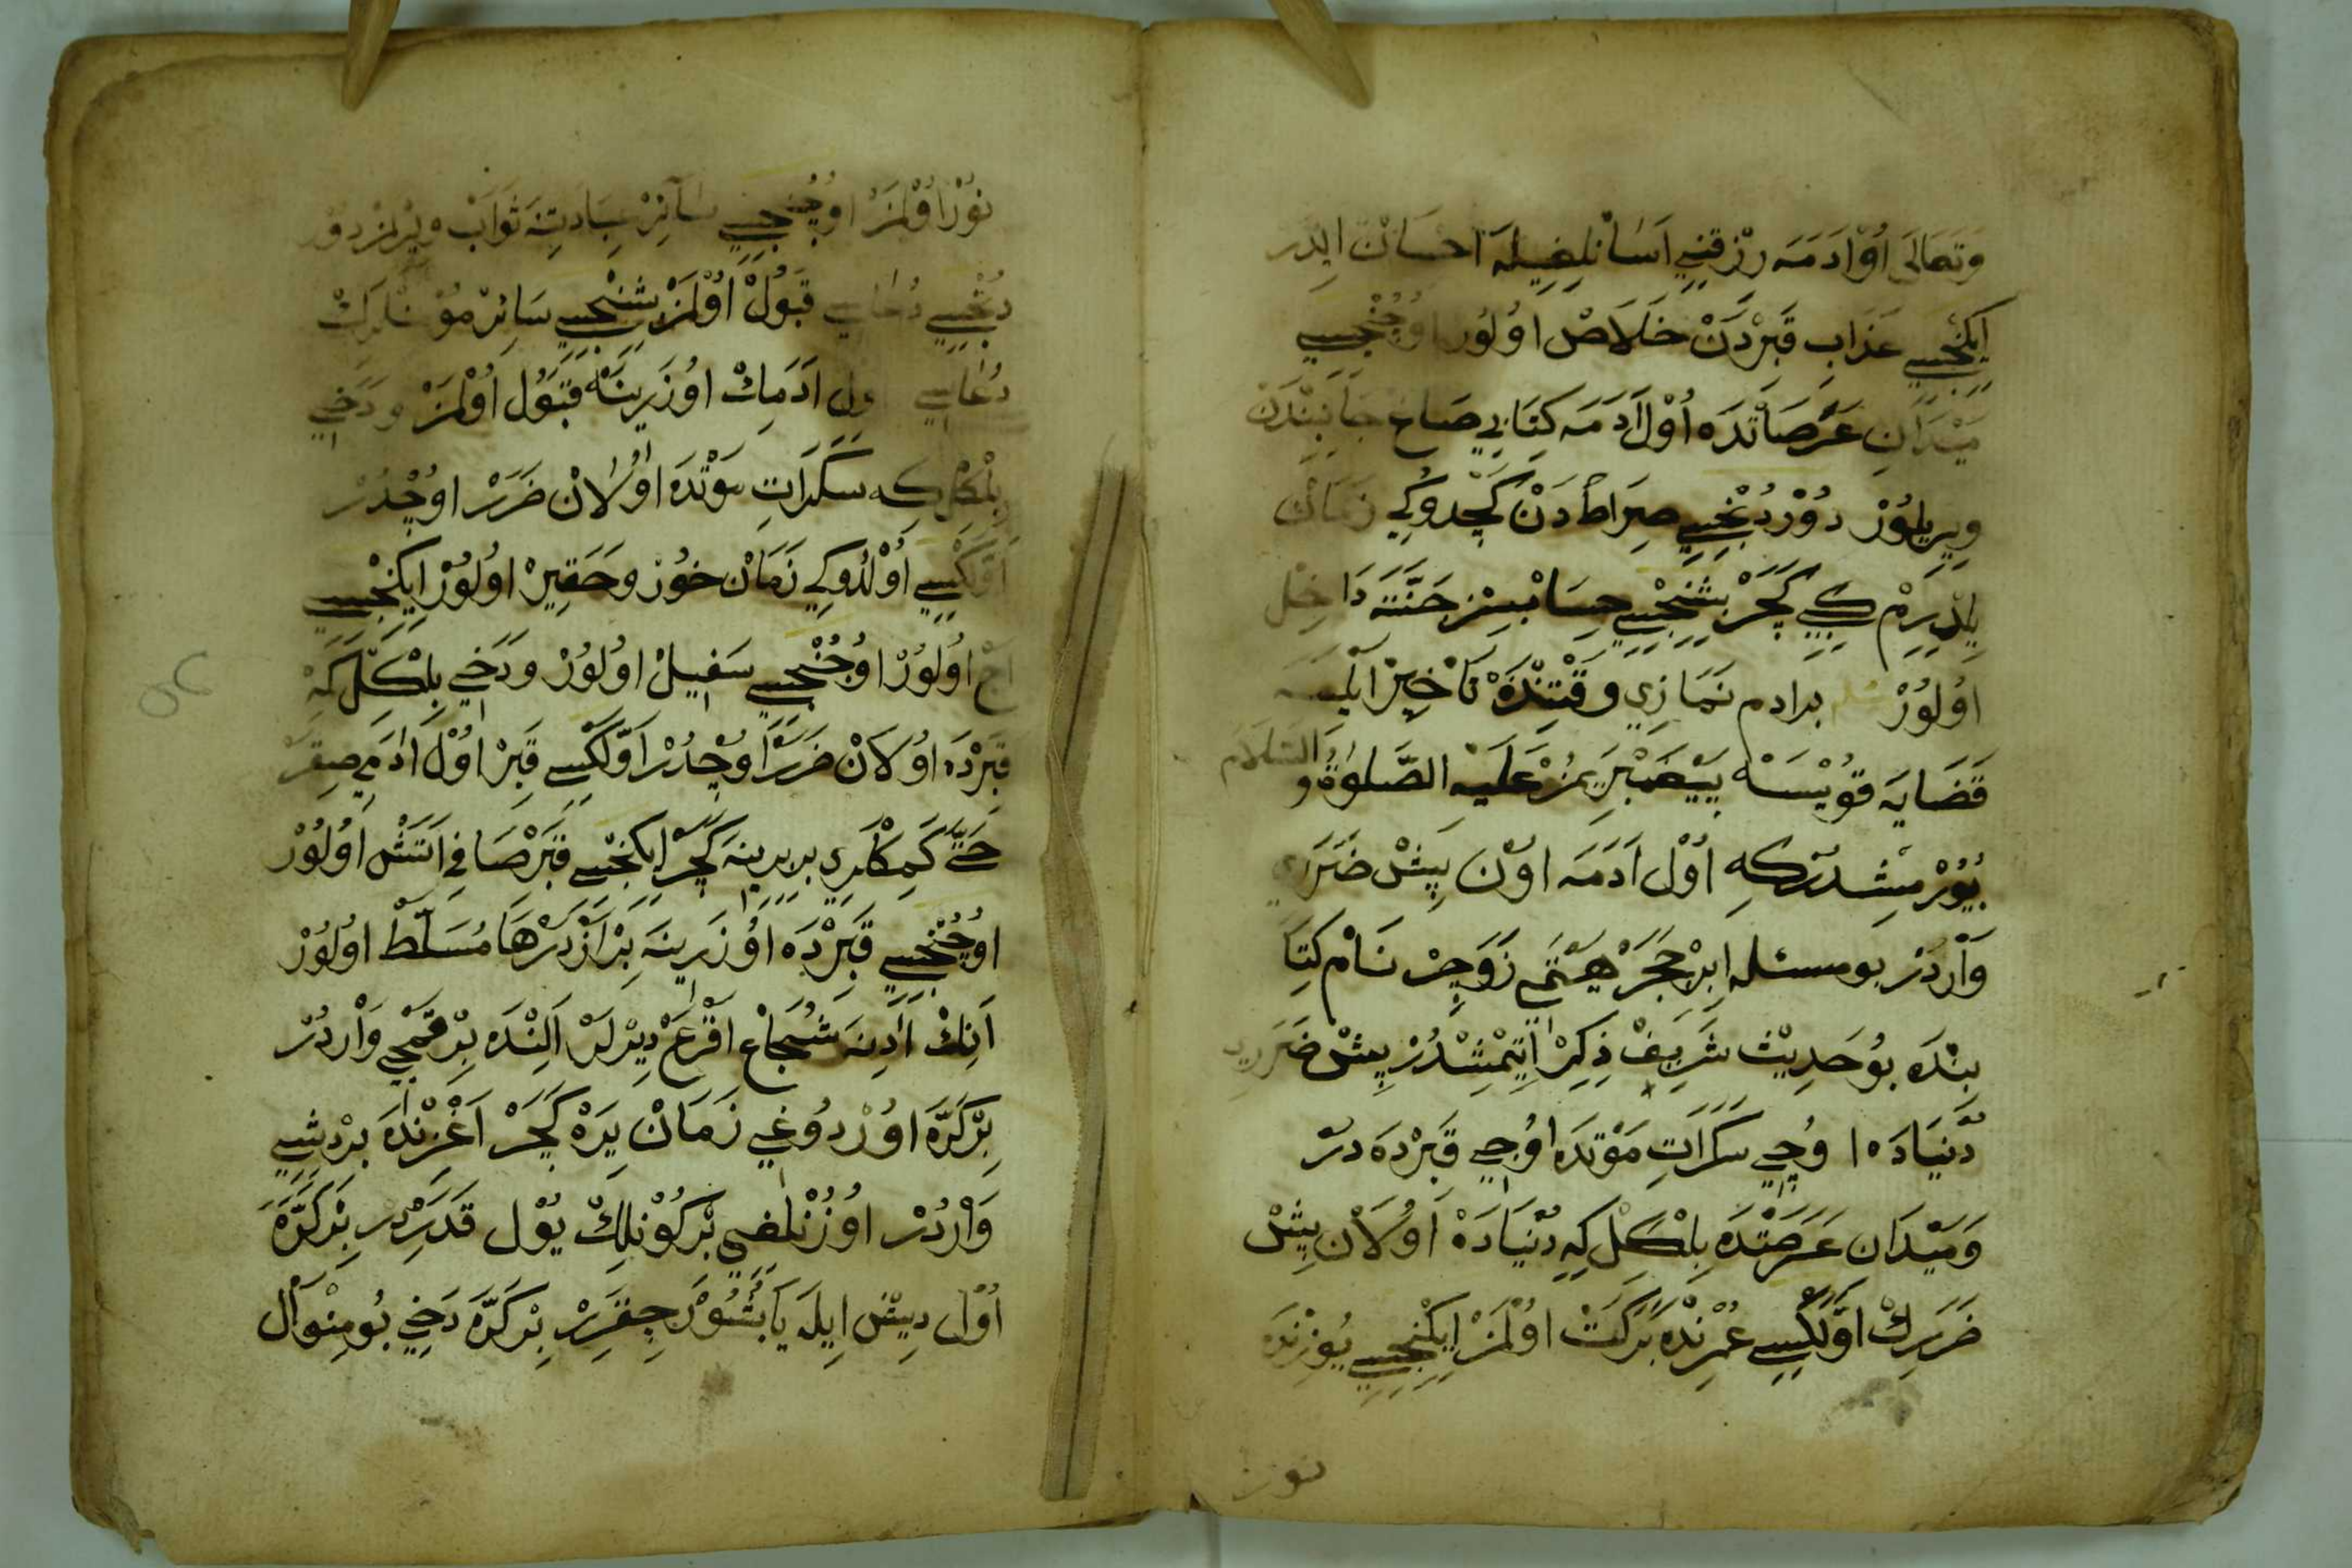 وَتَعَالَى اُوْل اَدَمَه رِزْقنِي اَسَانْلِغِيلَه اَحْسَانْ اَيدَر
اِيكِنْجِيسِي عَذَابِ قَبِرْدَنْ خَلَاصْ اوُلوُر اوُچُنْجِيسِي
مَيْدَانِ عَرَصَاتْدَه اُوْل اَدَمَه كِتَابِي صَاغ جَانِبِنْدَنْ
وِيرِيلوُرْ دُوْرْدُنْجِيسِي صِرَاطْ دَنْ كَچْدوُكِي زَمَانْ
يِلْدِيرِمْ كِبِي كَچَرْ بِشِنْجِيسِي حِسَابْسِزْ جَنَّتَه دَاخِلْ
اوُلوُرْ بر ادم نَمَازِي وَقْتِنْدَه تَأْخِيرْ اَيلَيسَه
قَضَايَه قوُيْسَه پَيْغَمْبَرِيمُزْ عَلَيْهِ الصَّلوٰةُ وَالسَّلَام
بُيُوْرْمِشْدُرْكِه اُوْل اَدَمَه اوُنْ بِيشْ ضَرَرِي
وَارْدُرْ بو مسئله اِبْنِ حَجَرْ هَيْتَمِي زَوَاجِرْ نَامْ كِتَا
بِنْدَه بوُ حَدِيثْ شَرِيفْ ذِكِرْ اِتِيْمِشْدُرْ بِيشْ ضَرَرِيد
دُنْيَادَه اوُچِي سَكَرَاتِ مَوْتْدَه اوُچِي قَبِرْدَه در
وَمَيْدَان عَرَصَتْدَه بِلْكِلْ كِه دُنْيَادَه اوُلَانْ بِيشْ
ضَرَرِكْ اَوَّلْكِيسِي عُمْرِنْدَه بَرَكَتْ اوُلْمَزْ اِيكِنْجِيسِي يُوزِنْدَه
نور
نوُرْ اوُلْمَزْ اوُچُنْجِيسِي سَائِرْ عِبَادَتِنَه ثَوَابْ وِيرِلْمَزْ دوُر
دُنْجِيسِي دُعَاسِي قَبُولْ اوُلْمَزْ بِشِنْجِيسِي سَائِرْ مُؤْمِنْلَرِكْ
دُعَاسِي اول اَدَمِكْ اوُزَرِينَه قَبُول اوُلْمَزْ وَدَخِي
بِلْكِلْ كِه سَكَرَاتِ مَوْتْدَه اوُلَانْ ضَرَرْ اوُچْدُرْ
اَوَّلْكِيسِي اوُلْدوُكِي زَمَانْ خوُرْ وحَقِيرْ اوُلوُرْ اِيكِنْجِيسِي
اَجْ اوُلوُرْ اوُچُنْجِيسِي سَفِيلْ اوُلوُرْ وَدَخِي بِلْكِلْ كِه
قَبِرْدَه اوُلَانْ ضَرَرْ اوُچْدُرْ اَوَّلْكِيسِي قَبِرْ اوُلْ اَدَمِي صِقَرْ
حَتَّى كَمِكْلَرِي بربرينَه كَچَرْ اِيكِنْجِيسِي قَبِرْ صَافِي اَتَشْ اوُلوُرْ
اوُچُنْجِيسِي قَبِرْدَه اوُزَرِينَه بِرْ اَزْدَرْهَا مُسَلَّطْ اوُلوُرْ
اَنِكْ اَدِنَه شُجَاعْ اَقْرَعْ دِيْرلَرْ اَلِنْدَه بِرْ قَمْچِي وَارْدُرْ
بِرْ كَرَّه اوُرْدوُغِي زَمَانْ يَرَه كَچَرْ اَغْزِنْدَه بِرْ دِيشِي
وَارْدُرْ اوُزُنْلِغِي بِرْ كوُنْلِكْ يوُل قَدَرْدِر بِرْ كَرَّه
اوُل دِيشْ اِيلَه يَاپُشُوْرْ چِقَرِرْ بِرْ كَرَّه دَخِي بوُ مِنْوَال